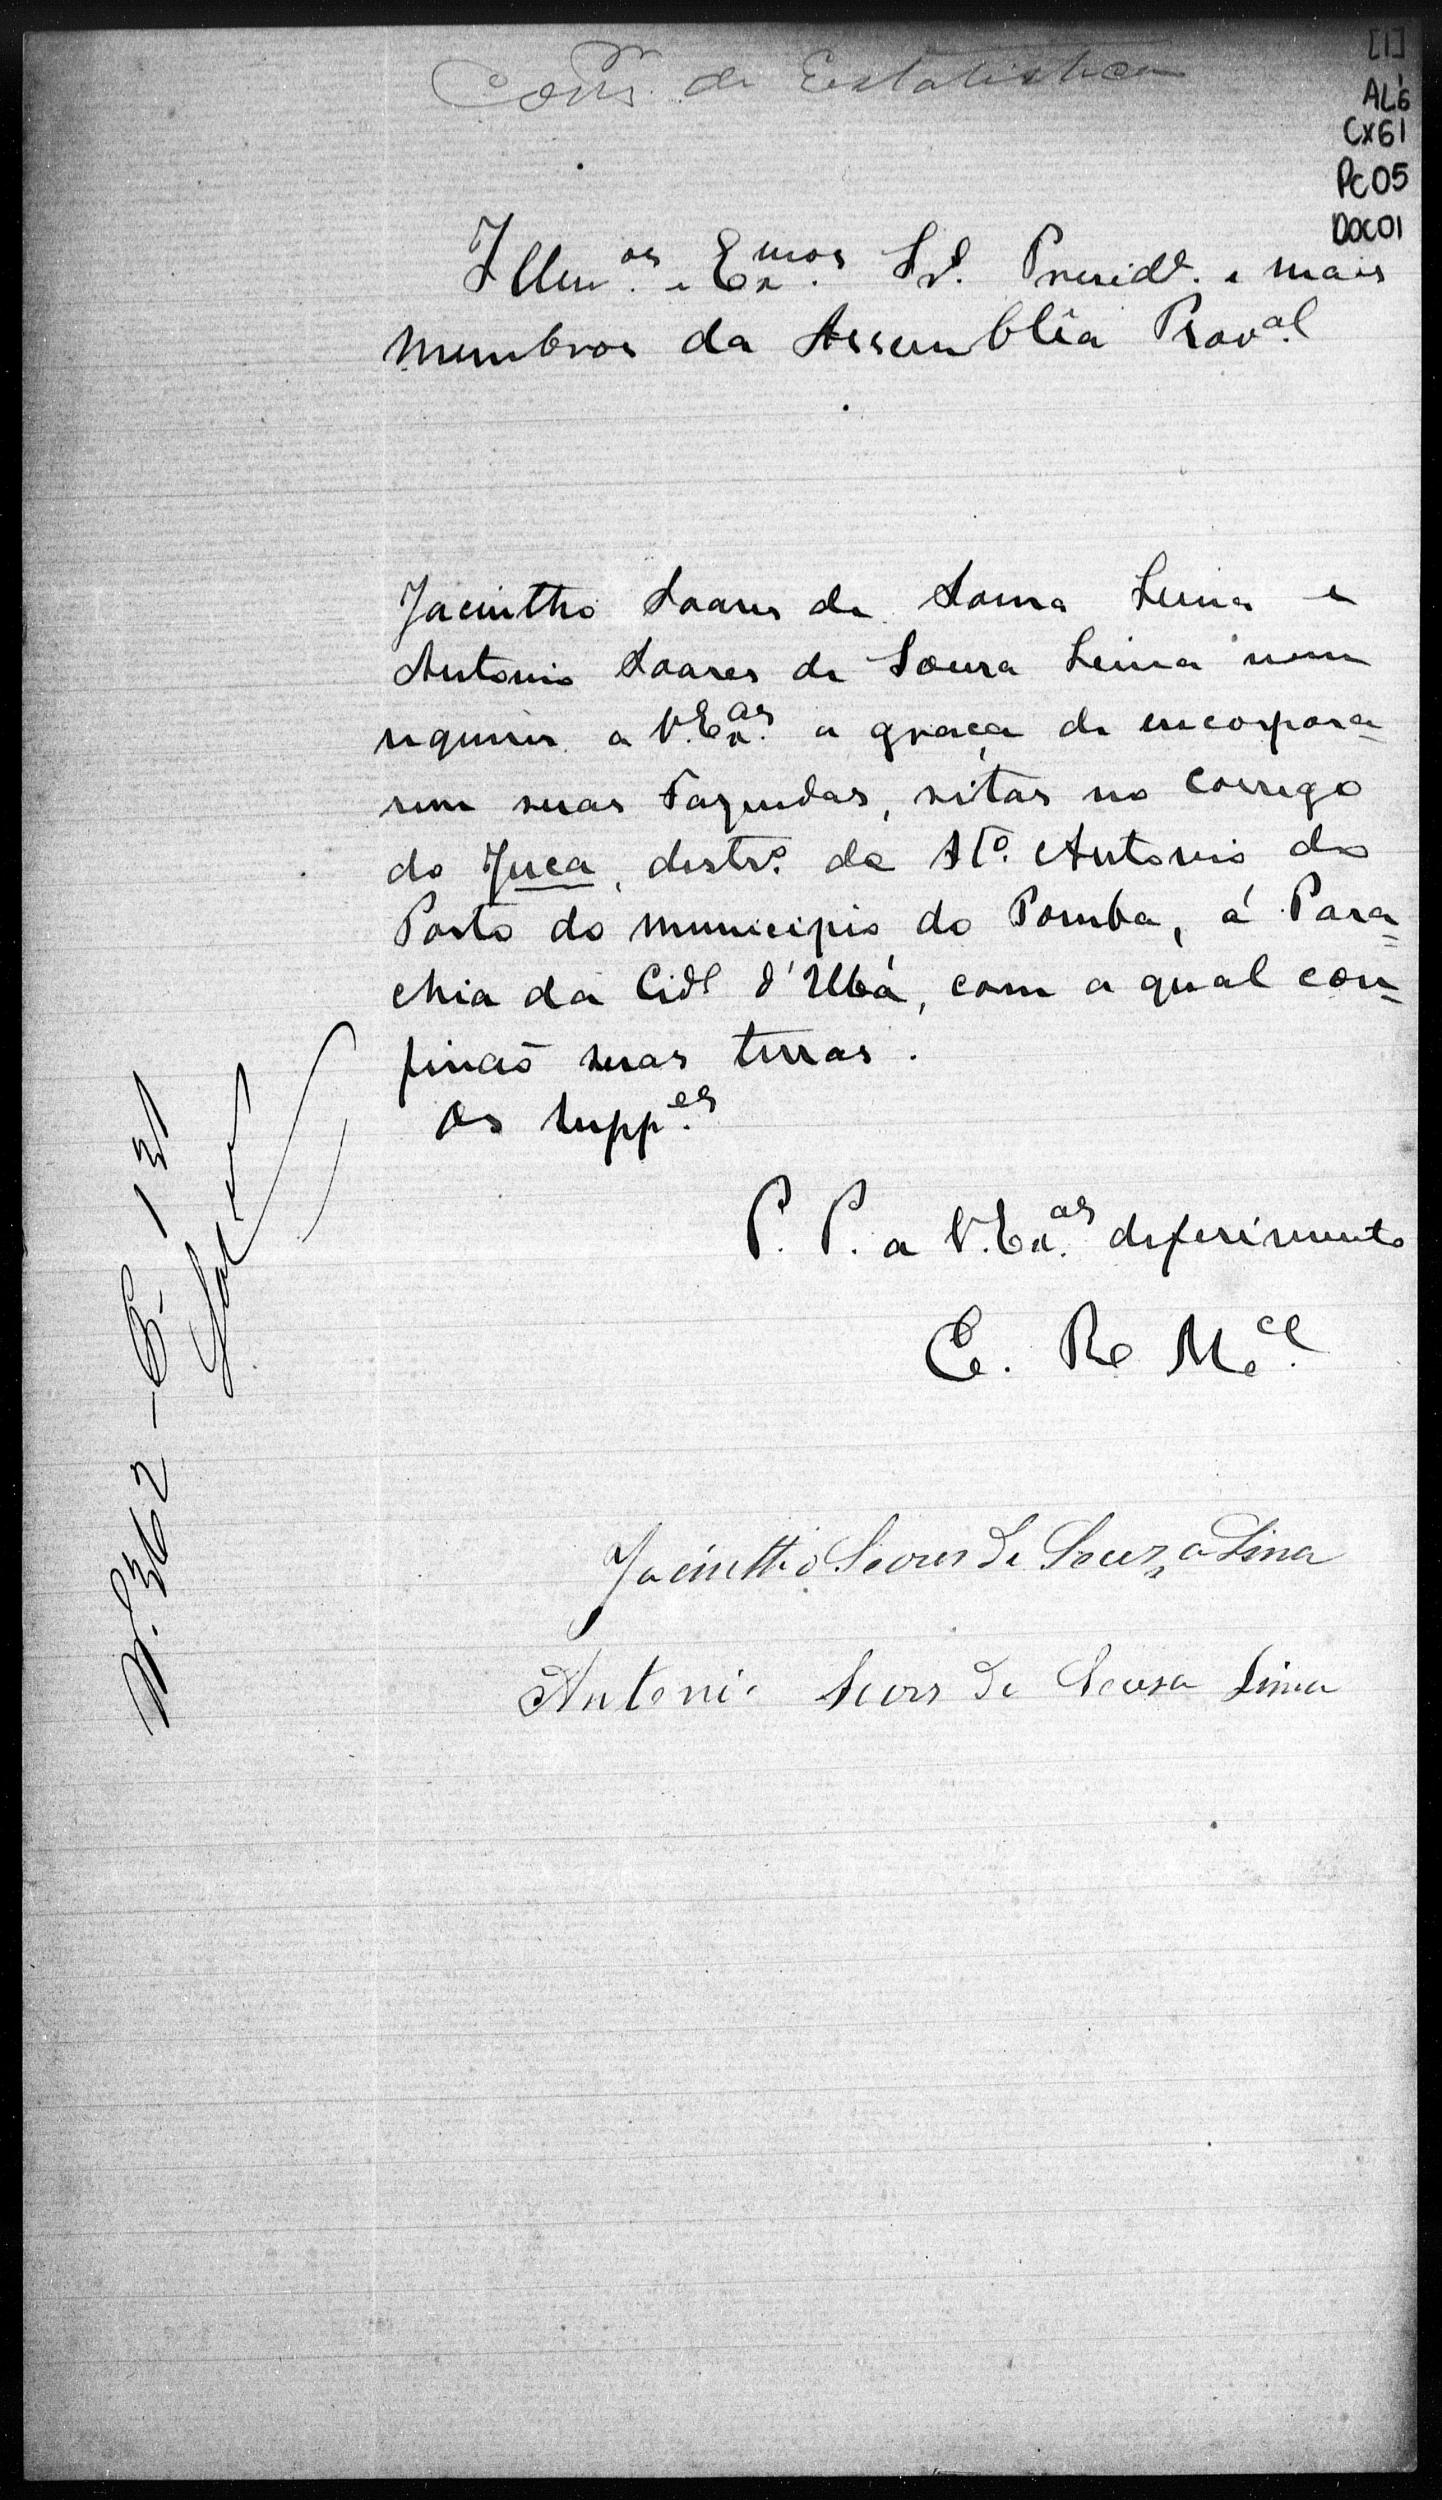 Com.m de Estatistica
[1]
AL6
Cx61
Pc05
Doc01
Illm.os e Exmos. Sr. Presid.e e mais
membros da Assemblêa Prov.al
Jacintho Soares de Souza Lima e
Antonio Soares de Souza Lima vem
requerer a V.Ex.as a graça de encorpora-
rem suas Fazendas, sitas no corrego
do Juca, destr.o de St.o Antonio do
Porto do municipio do Pomba, á Paro=
chia da Cid.e d'Ubá, com a qual con=
finão suas terras.
Os supp.es
P. P. a V.Ex.as deferimento
E. Re M.ce
Jacintho Soares de Souza Lima
Antonio Soars de Sousa Lima
N. 362 - C - 131